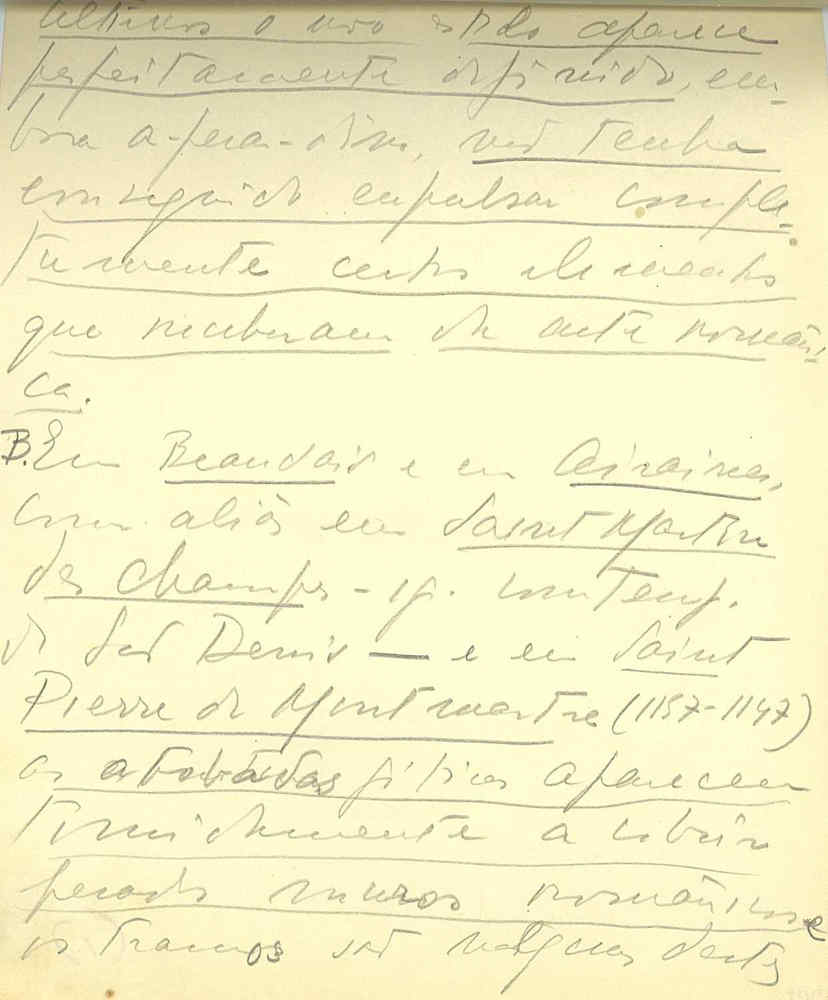 últimos o novo estilo aparece
perfeitamente definido, em-
bora a-pesar-disso, não tenha
conseguido expulsar comple-
tamente certos elementos
que receberam da arte români-
ca.
B. Em Beauvais e em Airaines,
como aliás em Saint Martin
des Champs - ig. contemp.
de São Denis — e em Saint
Pierre de Montmartre (1137-1147)
as abobadas góticas aparecem
timidamente a cobrir
pesados muros românicos e
os tramos são